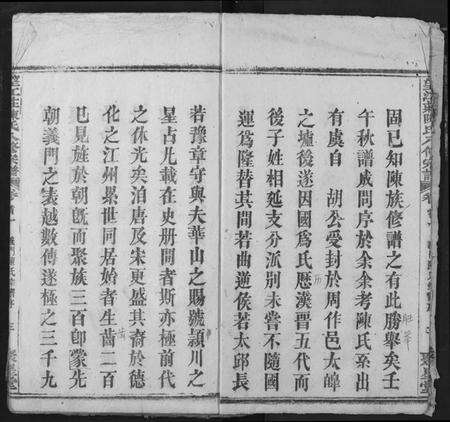 固已知陳族修譜之有此勝舉矣壬
午秋譜成問序於余余考陳氏系出
有虞自 胡公受封於周作邑太皥
之墟後遂因國爲氏歷漢晉五代而
後子姓相延支分派別未嘗不隨國
運隆替其間若曲逆侯若太邱長
若豫章守與夫華山之賜號潁川之
星占凡載在史册間者斯亦極前代
之休光矣洎唐及宋更盛其裔於德
化之江州累世同居始者生齒二百
已見旌於朝旣而聚族三百卽蒙先
朝義門之表越數傳遂極之三千九